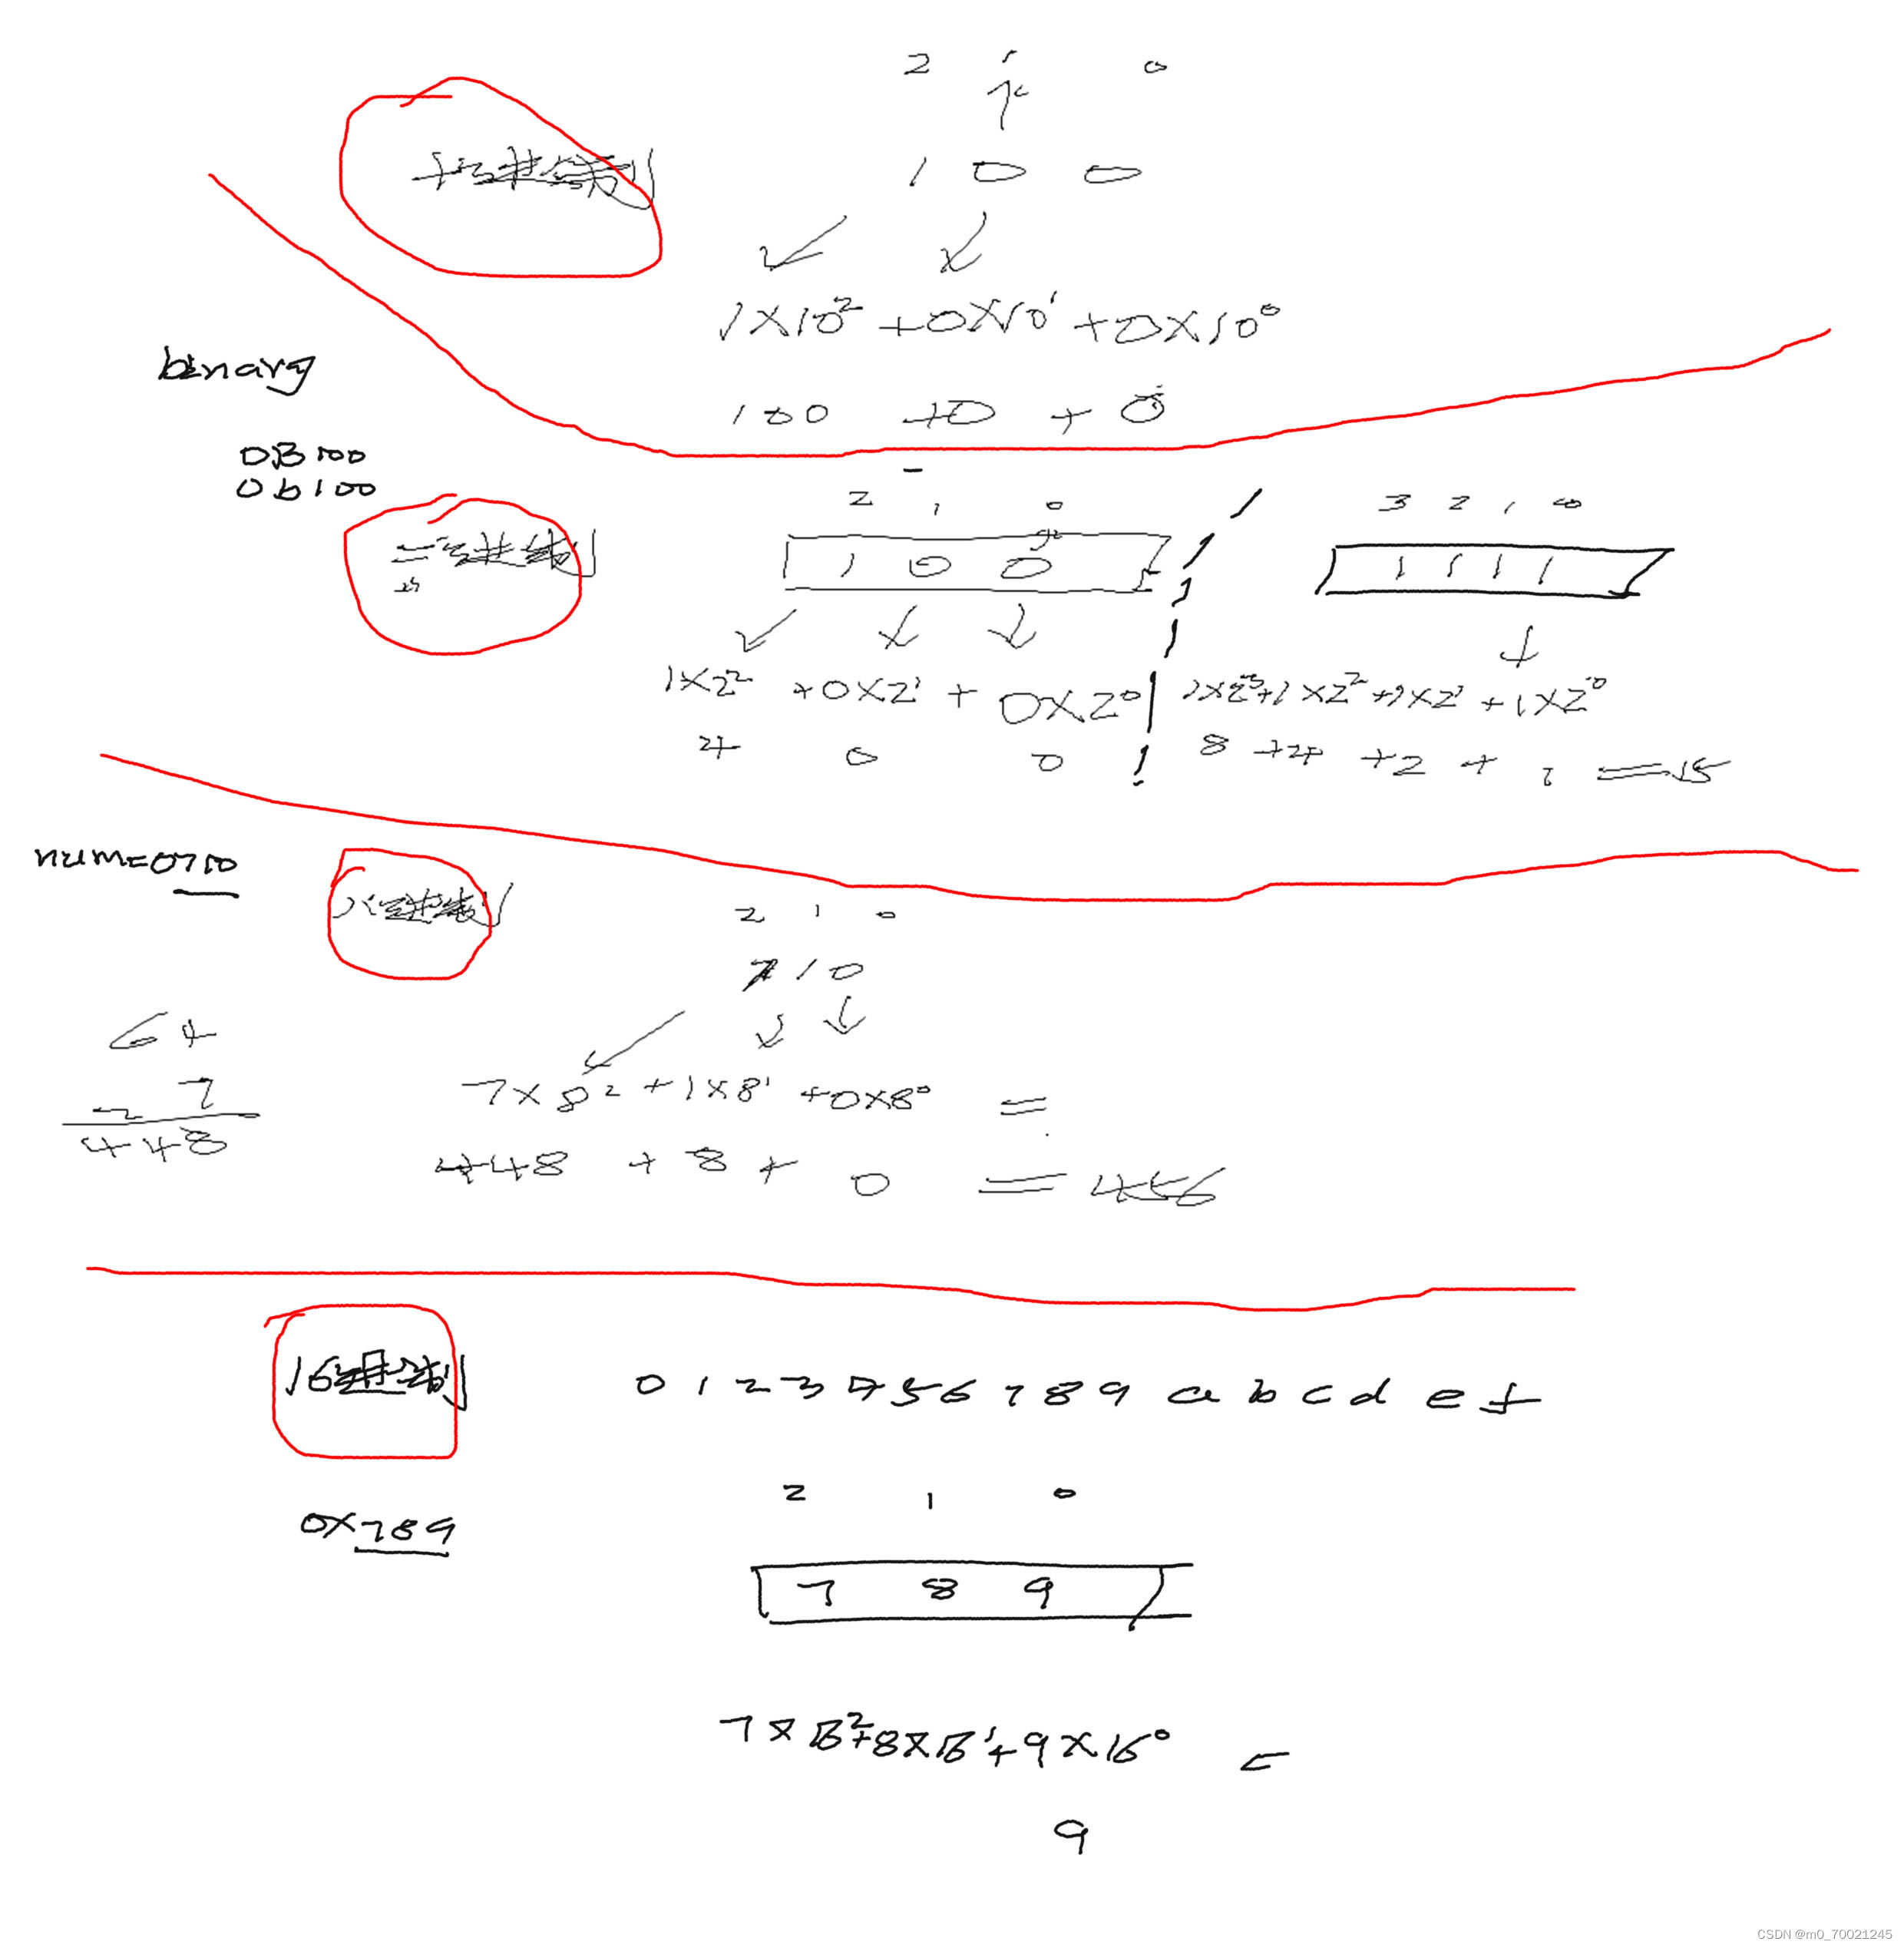 2 1 0
十进制
1 0 0
1×10² +0×10¹ +0×10⁰
binary
100 +0 + 0
0B100
0b100
2 1 0
3 2 1 0
二进制
1 0 0
1 1 1 1
1×2² +0×2¹ + 0×2⁰
1×2³+1×2²+1×2¹+1×2⁰
4 0 0
8 +4 +2 + 1 =15
num=0710
八进制
2 1 0
710
64
7
448
7×8² +1×8¹ +0×8⁰ =
448 +8+ 0 =456
16进制
0 1 2 3 4 5 6 7 8 9 a b c d e f
2 1 0
0x789
7 8 9
7×16²+8×16¹+9×16⁰ =
9
CSDN @m0_70021245